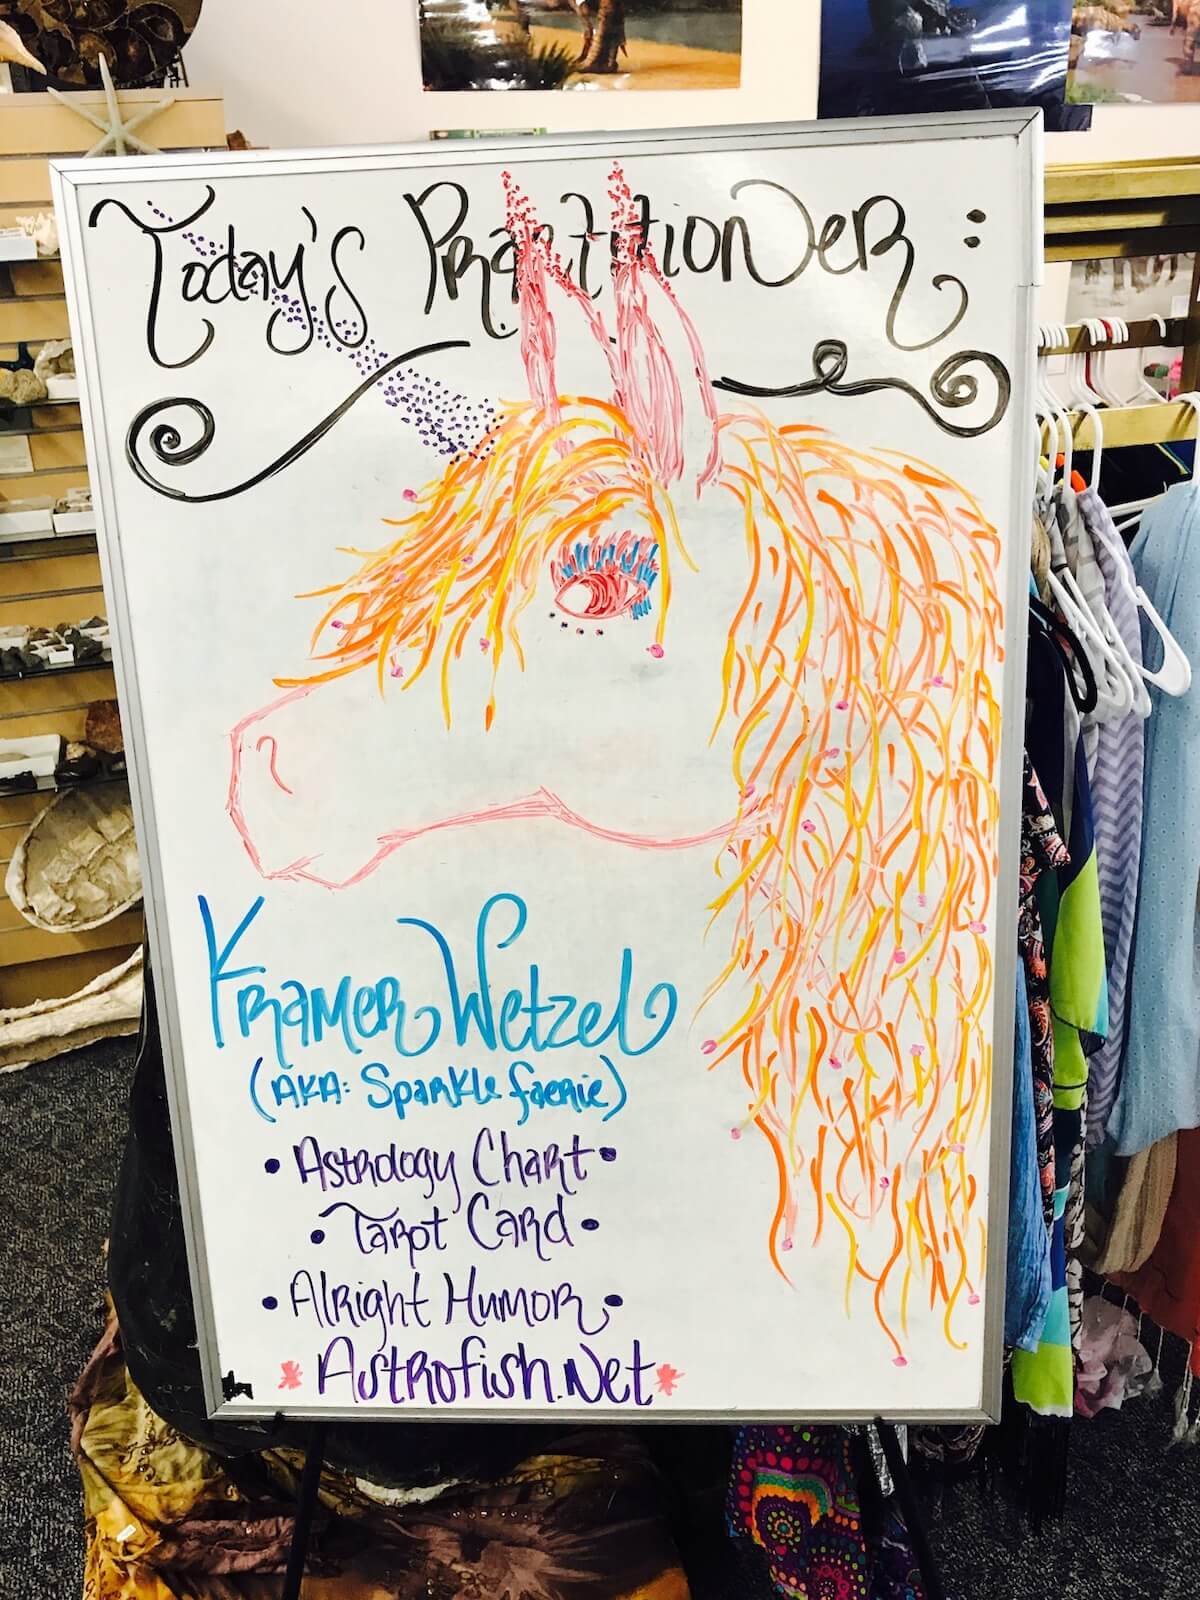 Today's Practitioner:
Kramer Wetzel
(AKA: Sparkle faerie)
• Astrology Chart •
• Tarot Card •
• Alright Humor •
* Astrofish.Net *